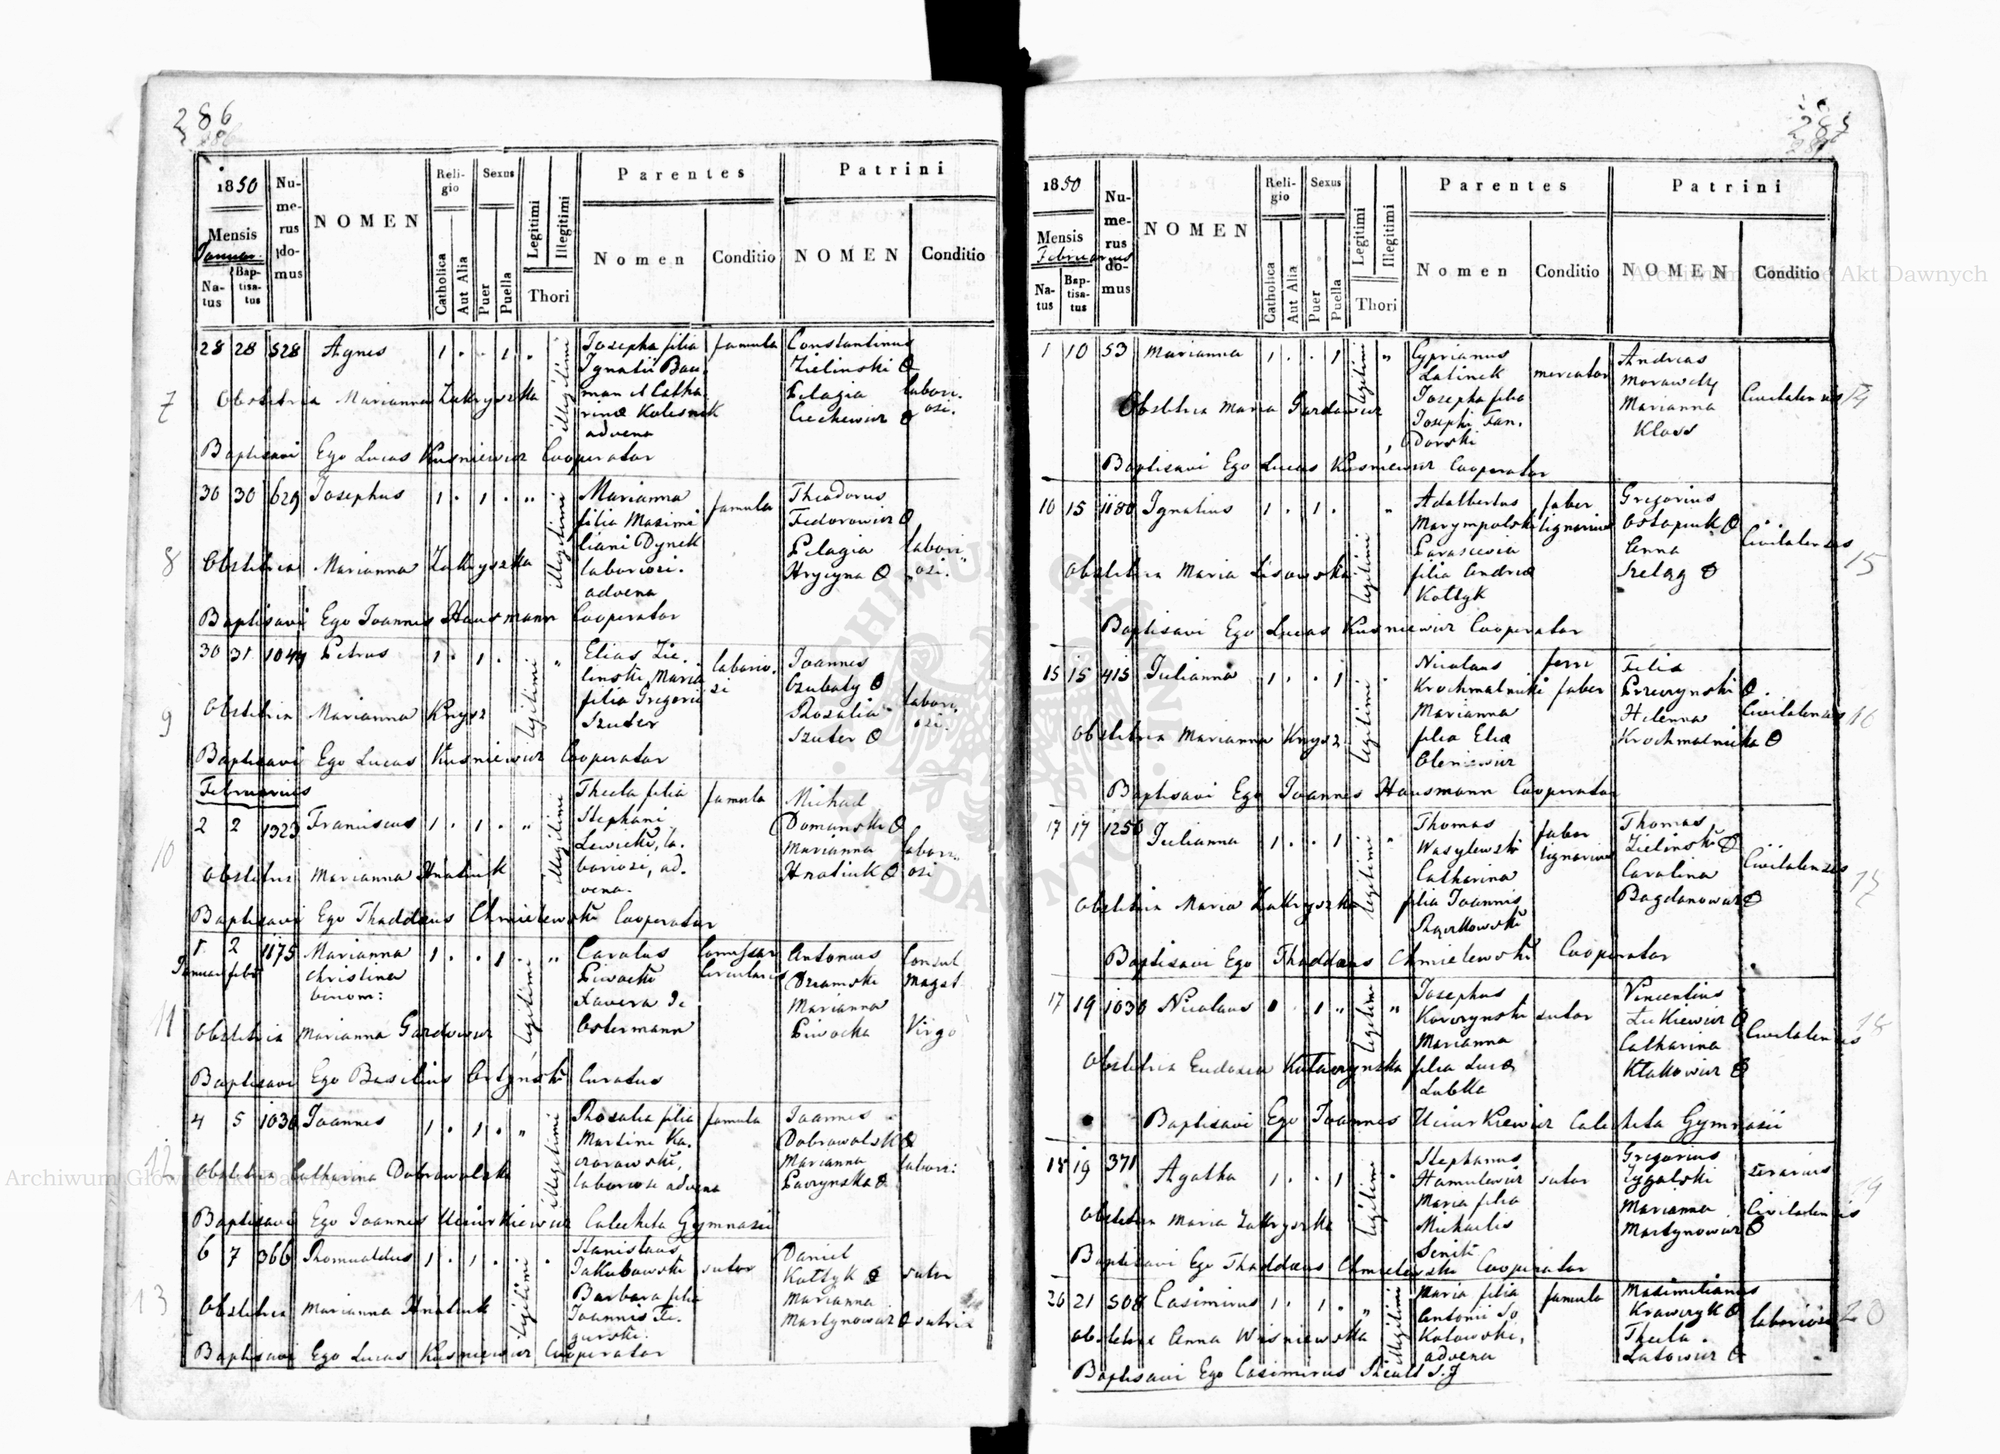 286
1850
Numerus domus
NOMEN
Religio
Sexus
Legitimi
Illegitimi
Thori
Parentes
Patrini
Mensis
Januar.
Natus
Baptisatus
Catholica
Aut Alia
Puer
Puella
Nomen
Conditio
NOMEN
Conditio
7
28 28 528 Agnes 1 . . 1 „ illegitimi Josepha filia famula Constantinus
Ignatii Bau- Zielinski
Obstetrix Marianna Zakryszka man et Catha- Pelagia labori-
rinæ Kolesnik osi.
advena
Baptisavi Ego Lucas Kusniewicz Cooperator
8
30 30 629 Josephus 1 . 1 . „ illegitimi Marianna famula Theodorus
filia Maximi Fedorowicz
liani Dynek Pelagia labori
Obstetrix Marianna Zakryszka laboriosi. Hrycyna osi.
advena
Baptisavi Ego Joannes Hausmann Cooperator
9
30 31 1049 Petrus 1 . 1 . legitimi „ Elias Zie- laborio- Joannes
linski, Maria si Czubaty
filia Gregorii Rosalia labori
Obstetrix Marianna Knysz Szuter Szuter osi
Baptisavi Ego Lucas Kusniewicz Cooperator
Februarius
10
2 2 1323 Franciscus 1 . 1 . „ illegitimi Thecla filia famula Michael
Stephani Domanski
Lewicki, la- Marianna labori
Obstetrix Marianna Hnatiuk boriosi, ad- Hnatiuk osi
vena.
Baptisavi Ego Thaddæus Chmielewski Cooperator
11
1 2 1175 Marianna 1 . . 1 legitimi „ Carolus Antonius Consul
Januar febr Christina Piwocki Circularis Dziamski Magst
binom: Xavera de Marianna
Obstetrix Marianna Gardowicz Ostermann Piwocka Virgo
Baptisavi Ego Basilius Curatus
12
4 5 1030 Joannes 1 . 1 . „ illegitimi Rosalia filia famula Joannes
Martini Ka- Dobrowolski
czorowski, Marianna labori:
Obstetrix Catharina Dobrowolska laboriosi advena Paczynska
Baptisavi Ego Joannes Catecheta Gymnasii
13
6 7 366 Romualdus 1 . 1 . legitimi Stanislaus Daniel
Jakubowski sutor Koltyk sutor
Barbara filia Marianna
Obstetrix Marianna Hnatiuk Joannis Martynowicz
Baptisavi Ego Lucas Kusniewicz Cooperator
1850
Numerus domus
NOMEN
Religio
Sexus
Legitimi
Illegitimi
Thori
Parentes
Patrini
Mensis
Februarius
Natus
Baptisatus
Catholica
Aut Alia
Puer
Puella
Nomen
Conditio
NOMEN
Conditio
1 10 53 Marianna 1 . . 1 legitimi „ Cyprianus Andreas
Latinek mercator Morawetz
Obstetrix Maria Gardowicz Josepha filia Marianna Civitatenses 14
Josephi Klass
Baptisavi Ego Lucas Kusniewicz Cooperator
10 15 1180 Ignatius 1 . 1 . legitimi „ Adalbertus faber Gregorius
Marympolski lignarius Ostapiuk
Parascevia Anna Civitatenses 15
Obstetrix Maria Lisowska filia Andreæ Szelag
Koltyk
Baptisavi Ego Lucas Kusniewicz Cooperator
15 15 415 Julianna 1 . . 1 legitimi Nicolaus ferri Felix
Krochmalnicki faber Przerzynski
Marianna Helenna Civitatenses 16
Obstetrix Marianna Knysz filia Eliæ Krochmalnicka
Oleniewicz
Baptisavi Ego Joannes Hausmann Cooperator
17 17 1250 Julianna 1 . . 1 legitimi „ Thomas faber Thomas
Wasylewski lignarius Zielinski
Catharina Carolina Civitatenses 17
Obstetrix Maria Zakryszka filia Joannis Bogdanowicz
Baptisavi Ego Thaddæus Chmielewski Cooperator
17 19 1030 Nicolaus 1 . 1 „ legitimi „ Josephus Vincentius
Korczynski sutor Lukiewicz
Marianna Catharina Civitatenses 18
Obstetrix Eudoxia Kotaczynska filia Lucæ Klakowicz
Lubka
Baptisavi Ego Joannes Catecheta Gymnasii
18 19 371 Agatha 1 . . 1 legitimi Stephanus Gregorius
Hamulewicz sutor Zygalski
Maria filia Marianna Civitatenses 19
Obstetrix Maria Zakryszka Michaelis Martynowicz
Senik
Baptisavi Ego Thaddæus Chmielewski Cooperator
20 21 508 Casimirus 1 . 1 . „ illegitimi Maria filia famula Maximilianus
Antonii So- Krawczyk laboriosi 20
Obstetrix Anna Wisniewska kolowski, Thecla
advena Latowicz
Baptisavi Ego Casimirus S.J
Archiwum Główne Akt Dawnych
Archiwum Główne Akt Dawnych
ARCHIWUM GŁÓWNE AKT DAWNYCH